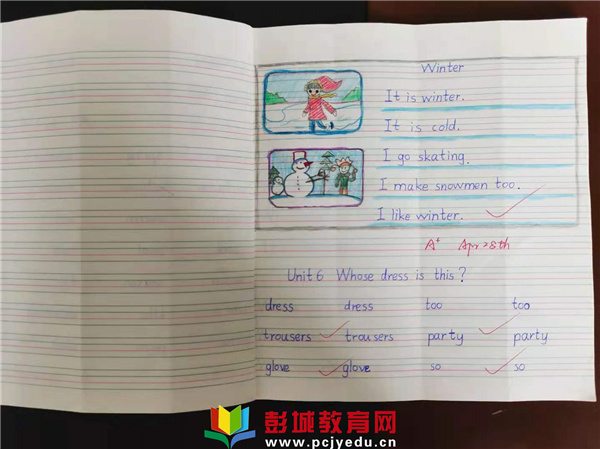 Winter
It is winter.
It is cold.
I go skating.
I make snowmen too.
I like winter.
A+ Apr 28th
Unit 6 Whose dress is this?
dress dress too too
trousers trousers party party
glove glove so so
彭城教育网
www.pcjyedu.cn